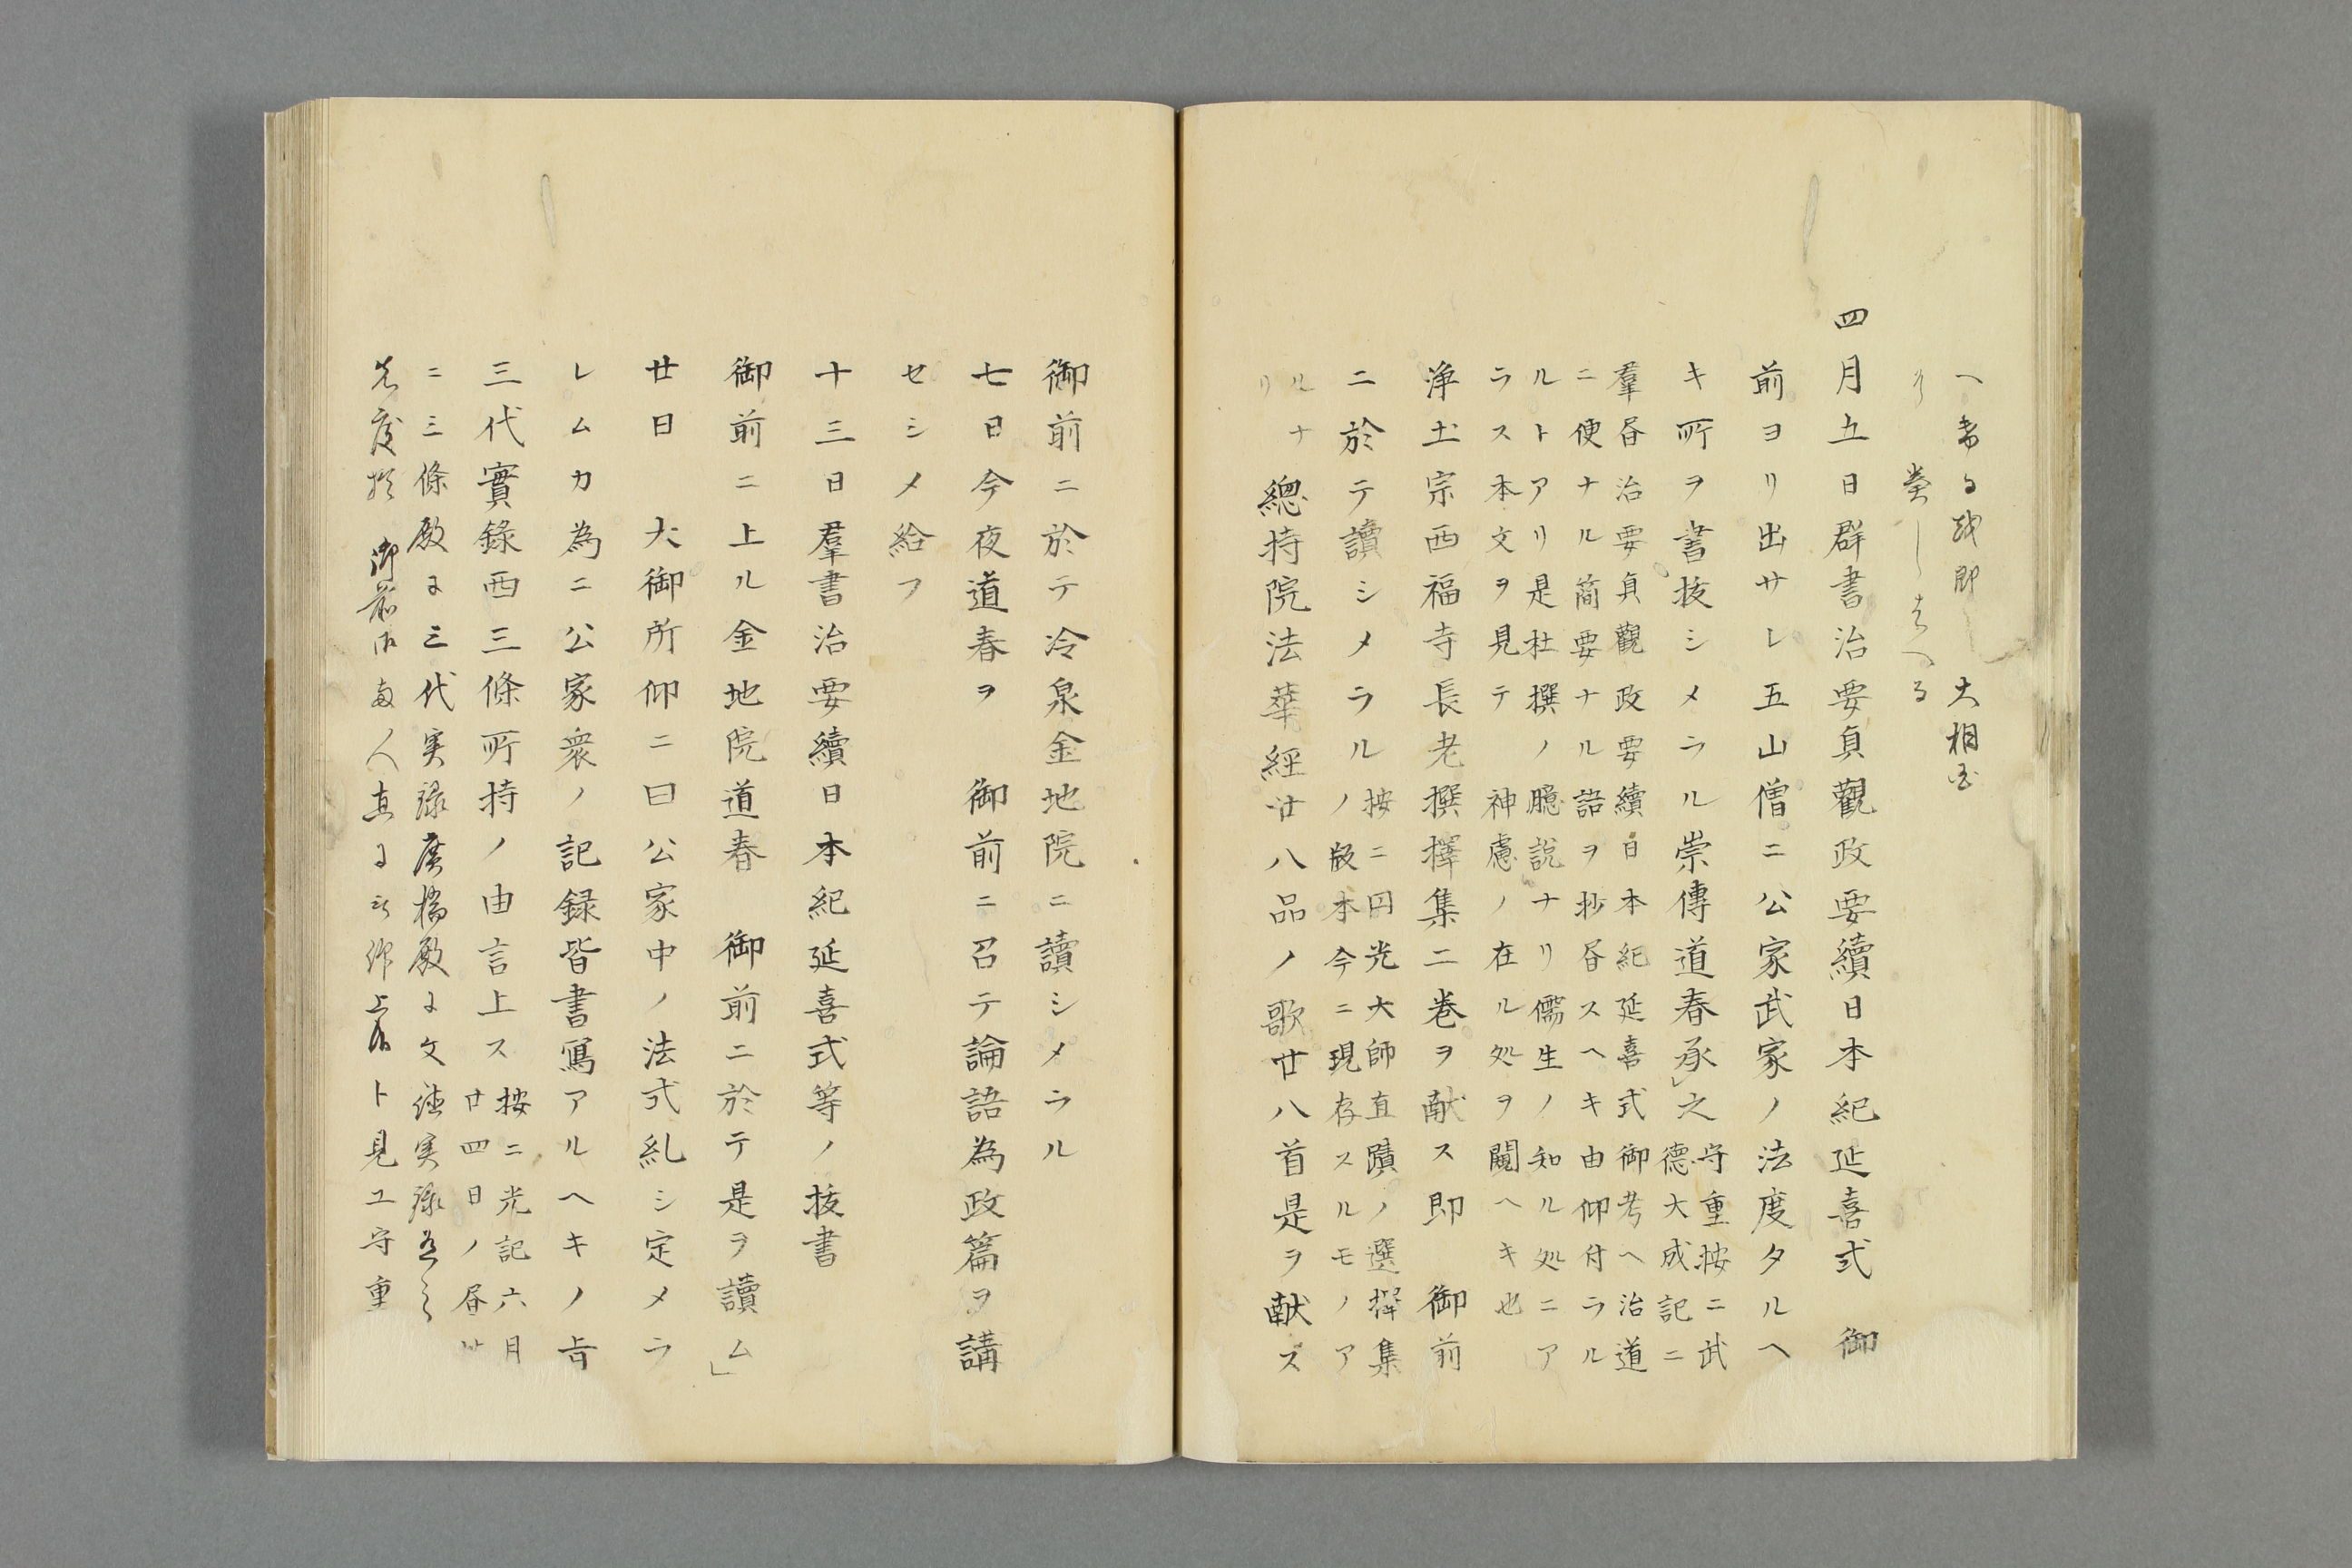 大相国
四月五日群書治要貞觀政要續日本紀延喜式　御
前ヨリ出サレ五山僧ニ公家武家ノ法度タルヘ
キ所ヲ書抜シメラル崇傳道春承之
守重按ニ武
德大成記ニ
羣書治要貞觀政要續日本紀延喜式御考ヘ治道
ニ便ナル簡要ナル語ヲ抄書スヘキ由仰付ラル
ルトアリ是杜撰ノ臆說ナリ儒生ノ知ル処ニア
ラス本文ヲ見テ　神慮ノ在ル処ヲ闚ヘキ也
淨土宗西福寺長老撰擇集二卷ヲ献ス即　御前
ニ於テ讀シメラル
按ニ円光大師直蹟ノ選擇集
ノ版本今ニ現存スルモノア
ルナ
リ
總持院法華經廿八品ノ歌廿八首是ヲ献ス
御前ニ於テ冷泉金地院ニ讀シメラル
七日今夜道春ヲ　御前ニ召テ論語為政篇ヲ講
セシメ給フ
十三日羣書治要續日本紀延喜式等ノ抜書
御前ニ上ル金地院道春　御前ニ於テ是ヲ讀ム
廿日　大御所仰ニ曰公家中ノ法式糺シ定メラ
レムカ為ニ公家衆ノ記録皆書寫アルヘキノ旨
三代實錄西三條所持ノ由言上ス
按ニ光記六月
廿四日ノ書
ニ三條殿に三代実録廣橋殿に文徳実録
先度於　御前
ト見ユ守重